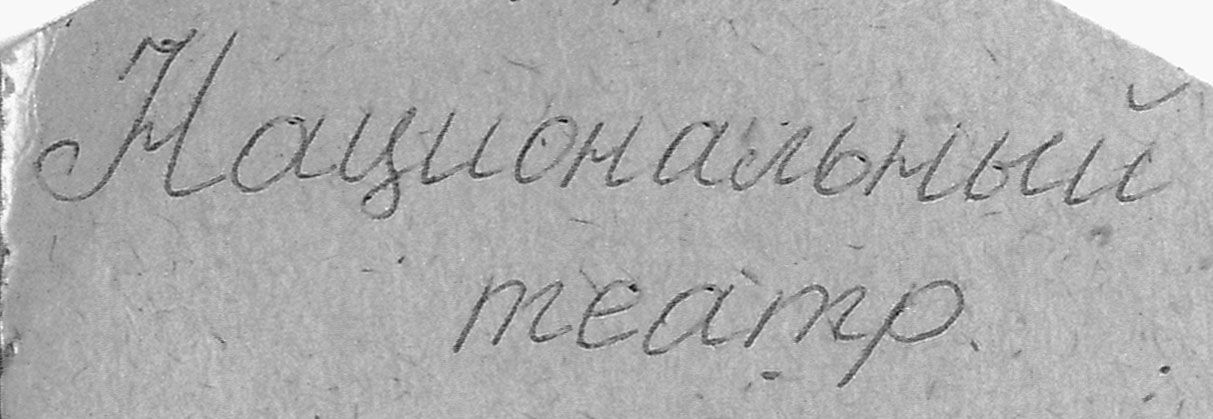 Национальный
театр.